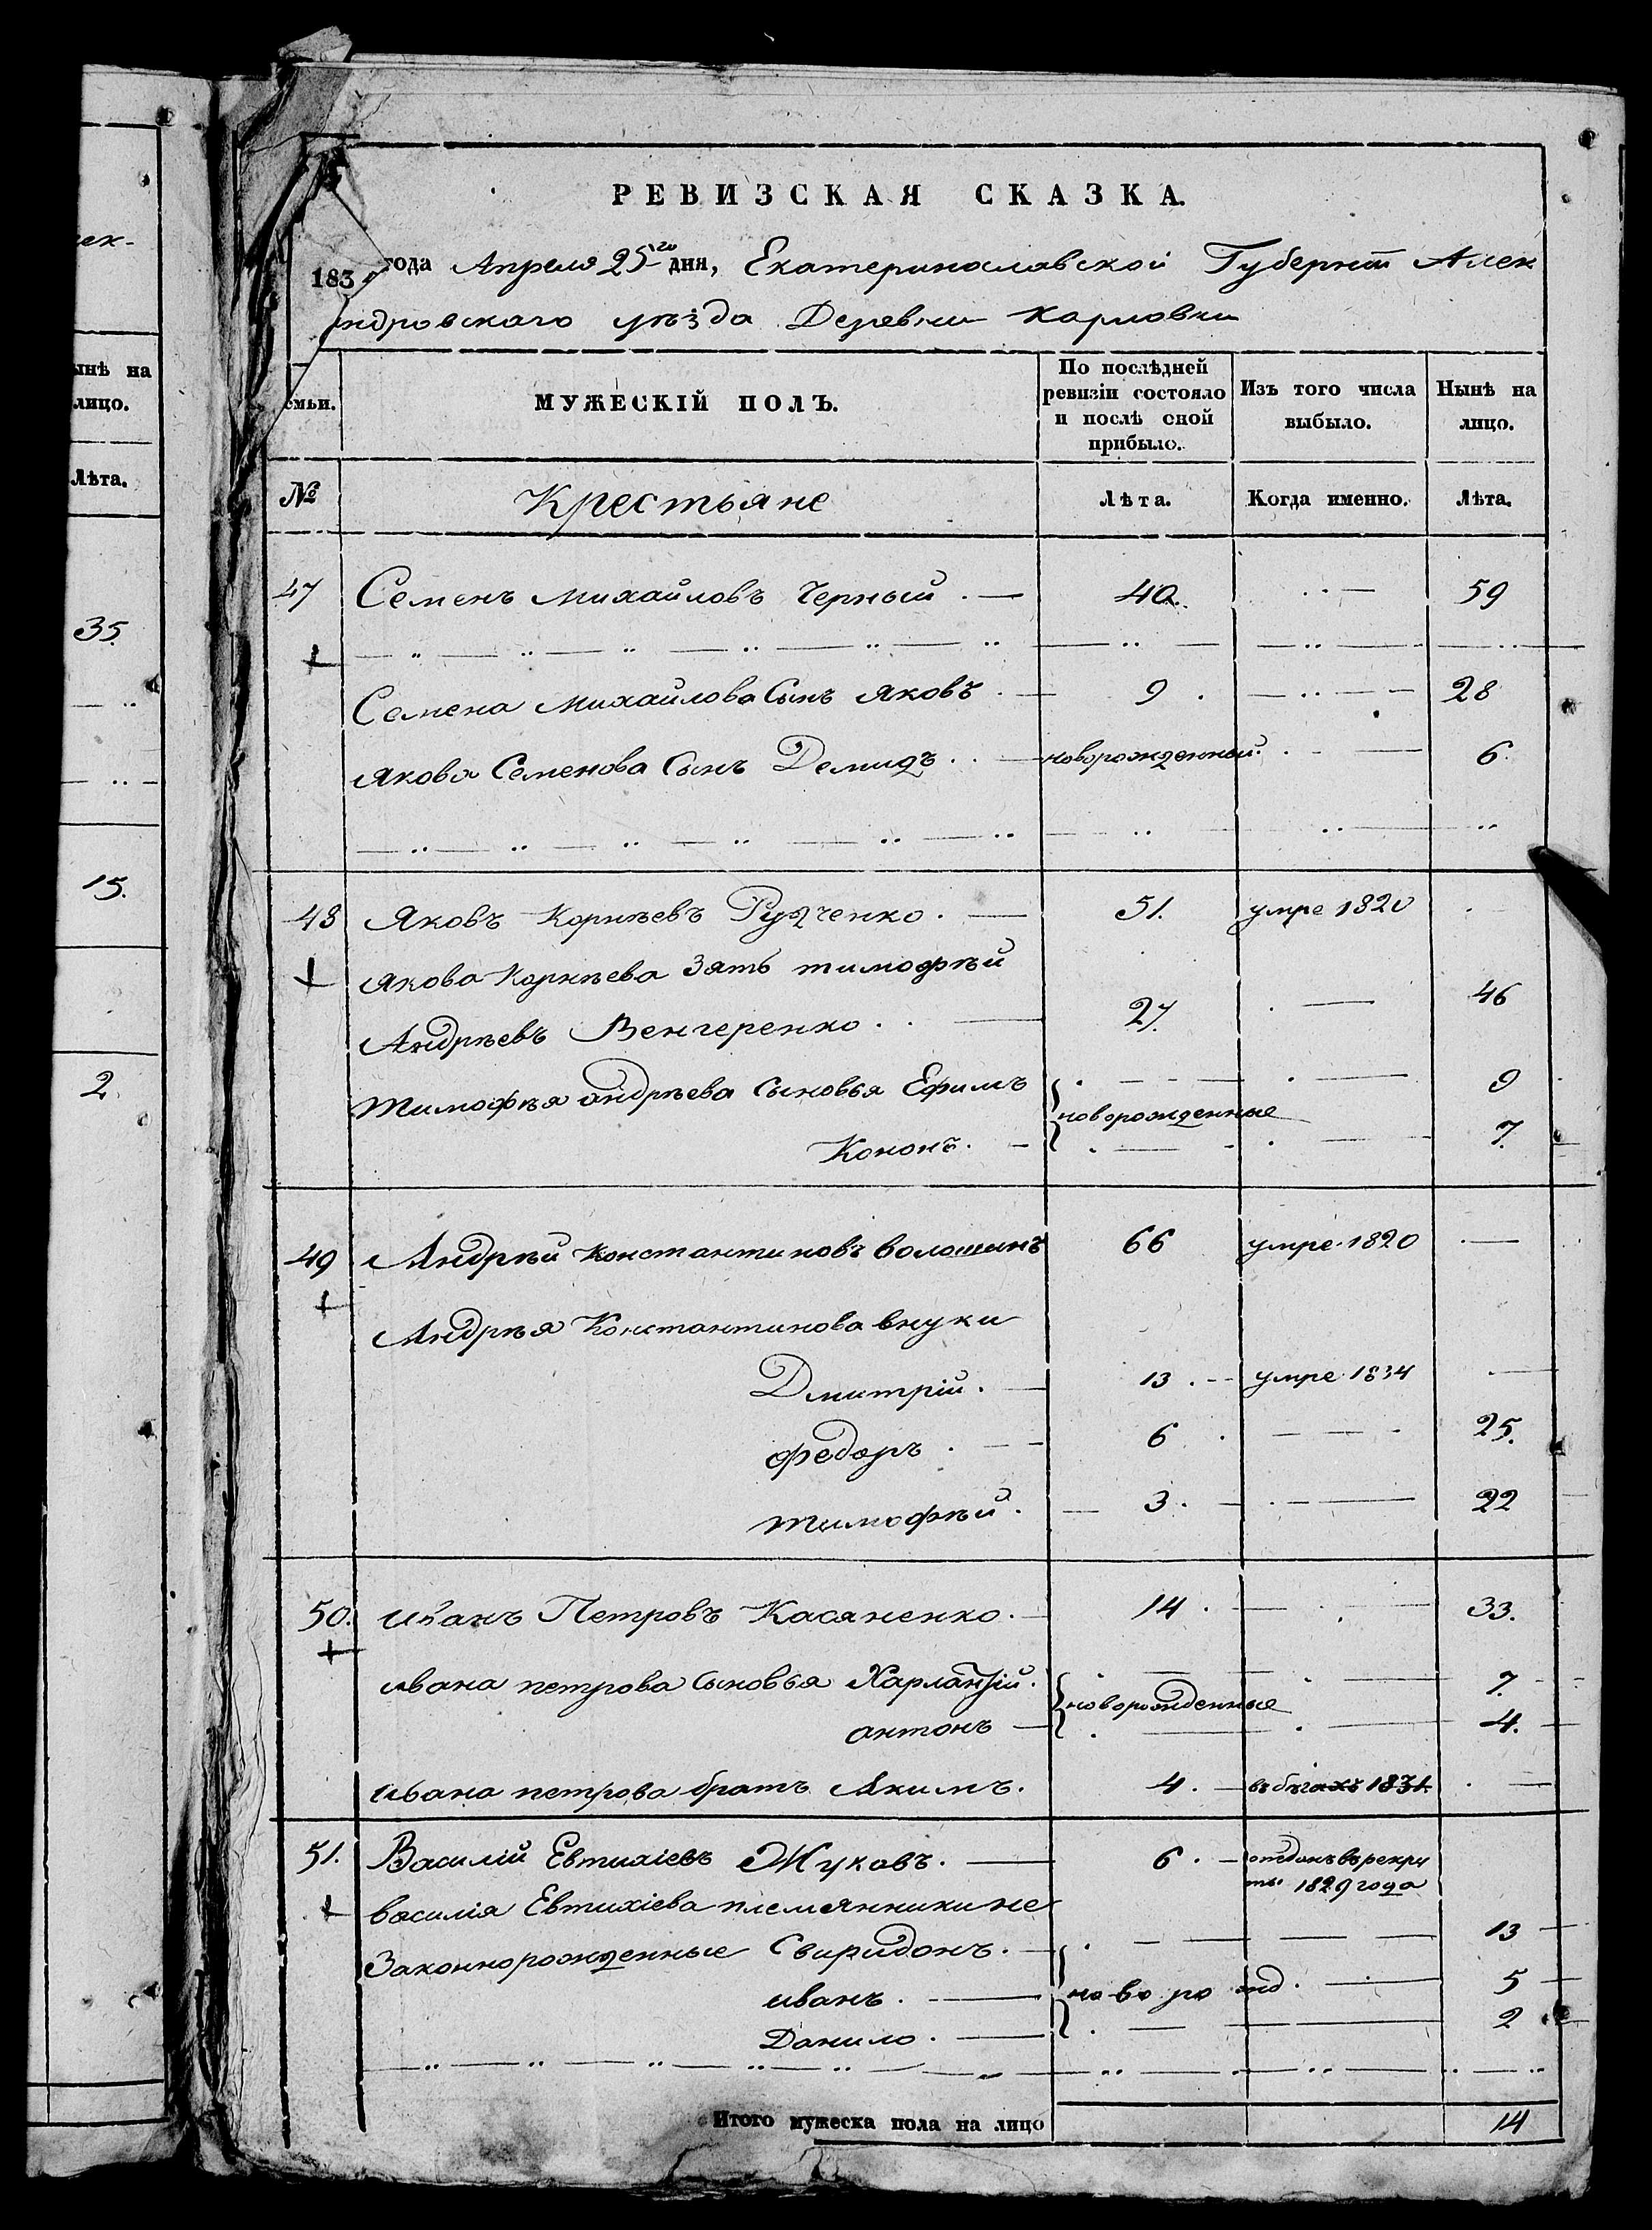 ек-
ынѣ на
лицо.
Лѣта.
35.
15.
2.
РЕВИЗСКАЯ СКАЗКА.
183 года Апреля 25го дня, Екатеринославской Губернiи Алек
ндровскаго уѣзда Деревни Карловки
емьи.
МУЖЕСКІЙ ПОЛЪ.
По послѣдней
ревизіи состояло
и послѣ оной
прибыло.
Изъ того числа
выбыло.
Нынѣ на
лицо.
№ Крестьяне Лѣта. Когда именно. Лѣта.
47 Семенъ михайловъ Черный . — 40. .. — 59
Семена михайлова Сынъ яковъ . — 9 . 28
якова Семенова Сынъ Демидъ . . — новорожденный . . - — 6.
48 Яковъ Корнѣевъ Рудченко . — 51. умре 1820
якова Корнѣева Зять тимофѣй
Андрѣевъ Венгеренко . . — 27. . — 46
тимофѣя андрѣева Сыновья Ефимъ 9
новорожденные
Кононъ. - 7.
49 Андрѣй Константиновъ волошинъ 66 умре 1820 —
Андрѣя Константинова внуки
Дмитрій. — 13 . - умре 1834 —
федоръ . — 6 . 25.
тимофѣй. — 3. 22
50. иванъ Петровъ Касяненко. — 14 . 33.
ивана петрова Сыновья Харлампій. 7.
новорожденные
антонъ — 4.
ивана петрова братъ Акимъ. 4. — въ бѣгахъ 1831. . —
51. Василій Евтихіевъ Жуковъ. — 6 . - отданъ въ рекру
ты 1829 года
василія Евтихіева племянники не
Законнорожденные Свиридонъ. — 13
иванъ . — ново рожд . — 5
Данило . — 2
Итого мужеска пола на лицо 14